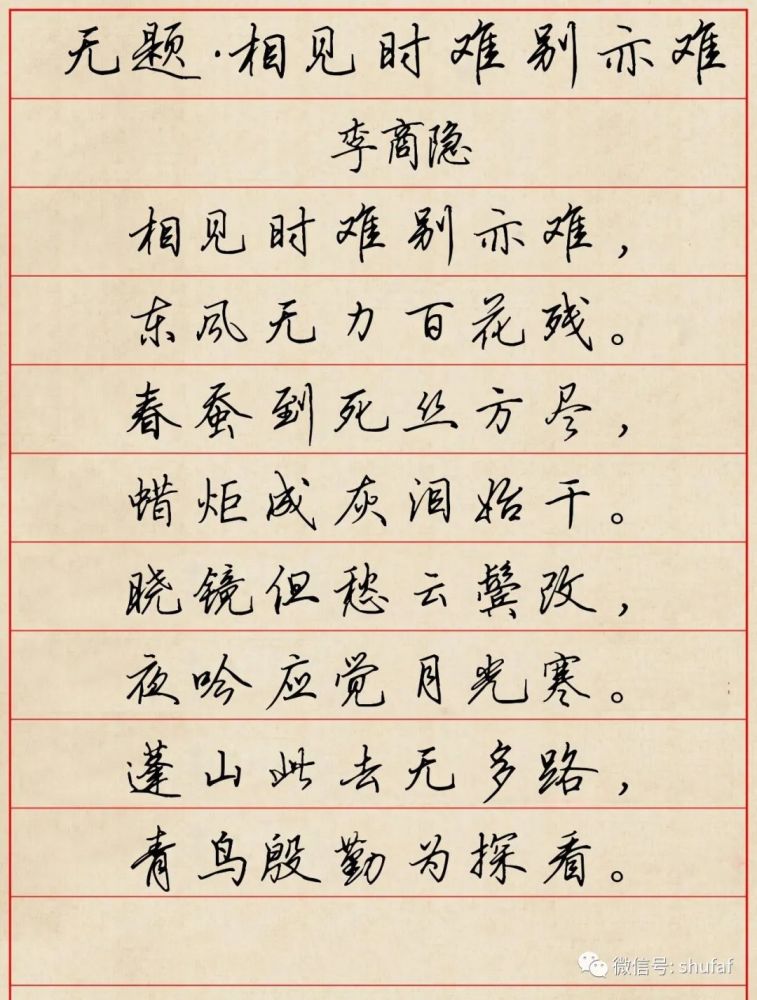 无题·相见时难别亦难
李商隐
相见时难别亦难，
东风无力百花残。
春蚕到死丝方尽，
蜡炬成灰泪始干。
晓镜但愁云鬓改，
夜吟应觉月光寒。
蓬山此去无多路，
青鸟殷勤为探看。
微信号: shufaf